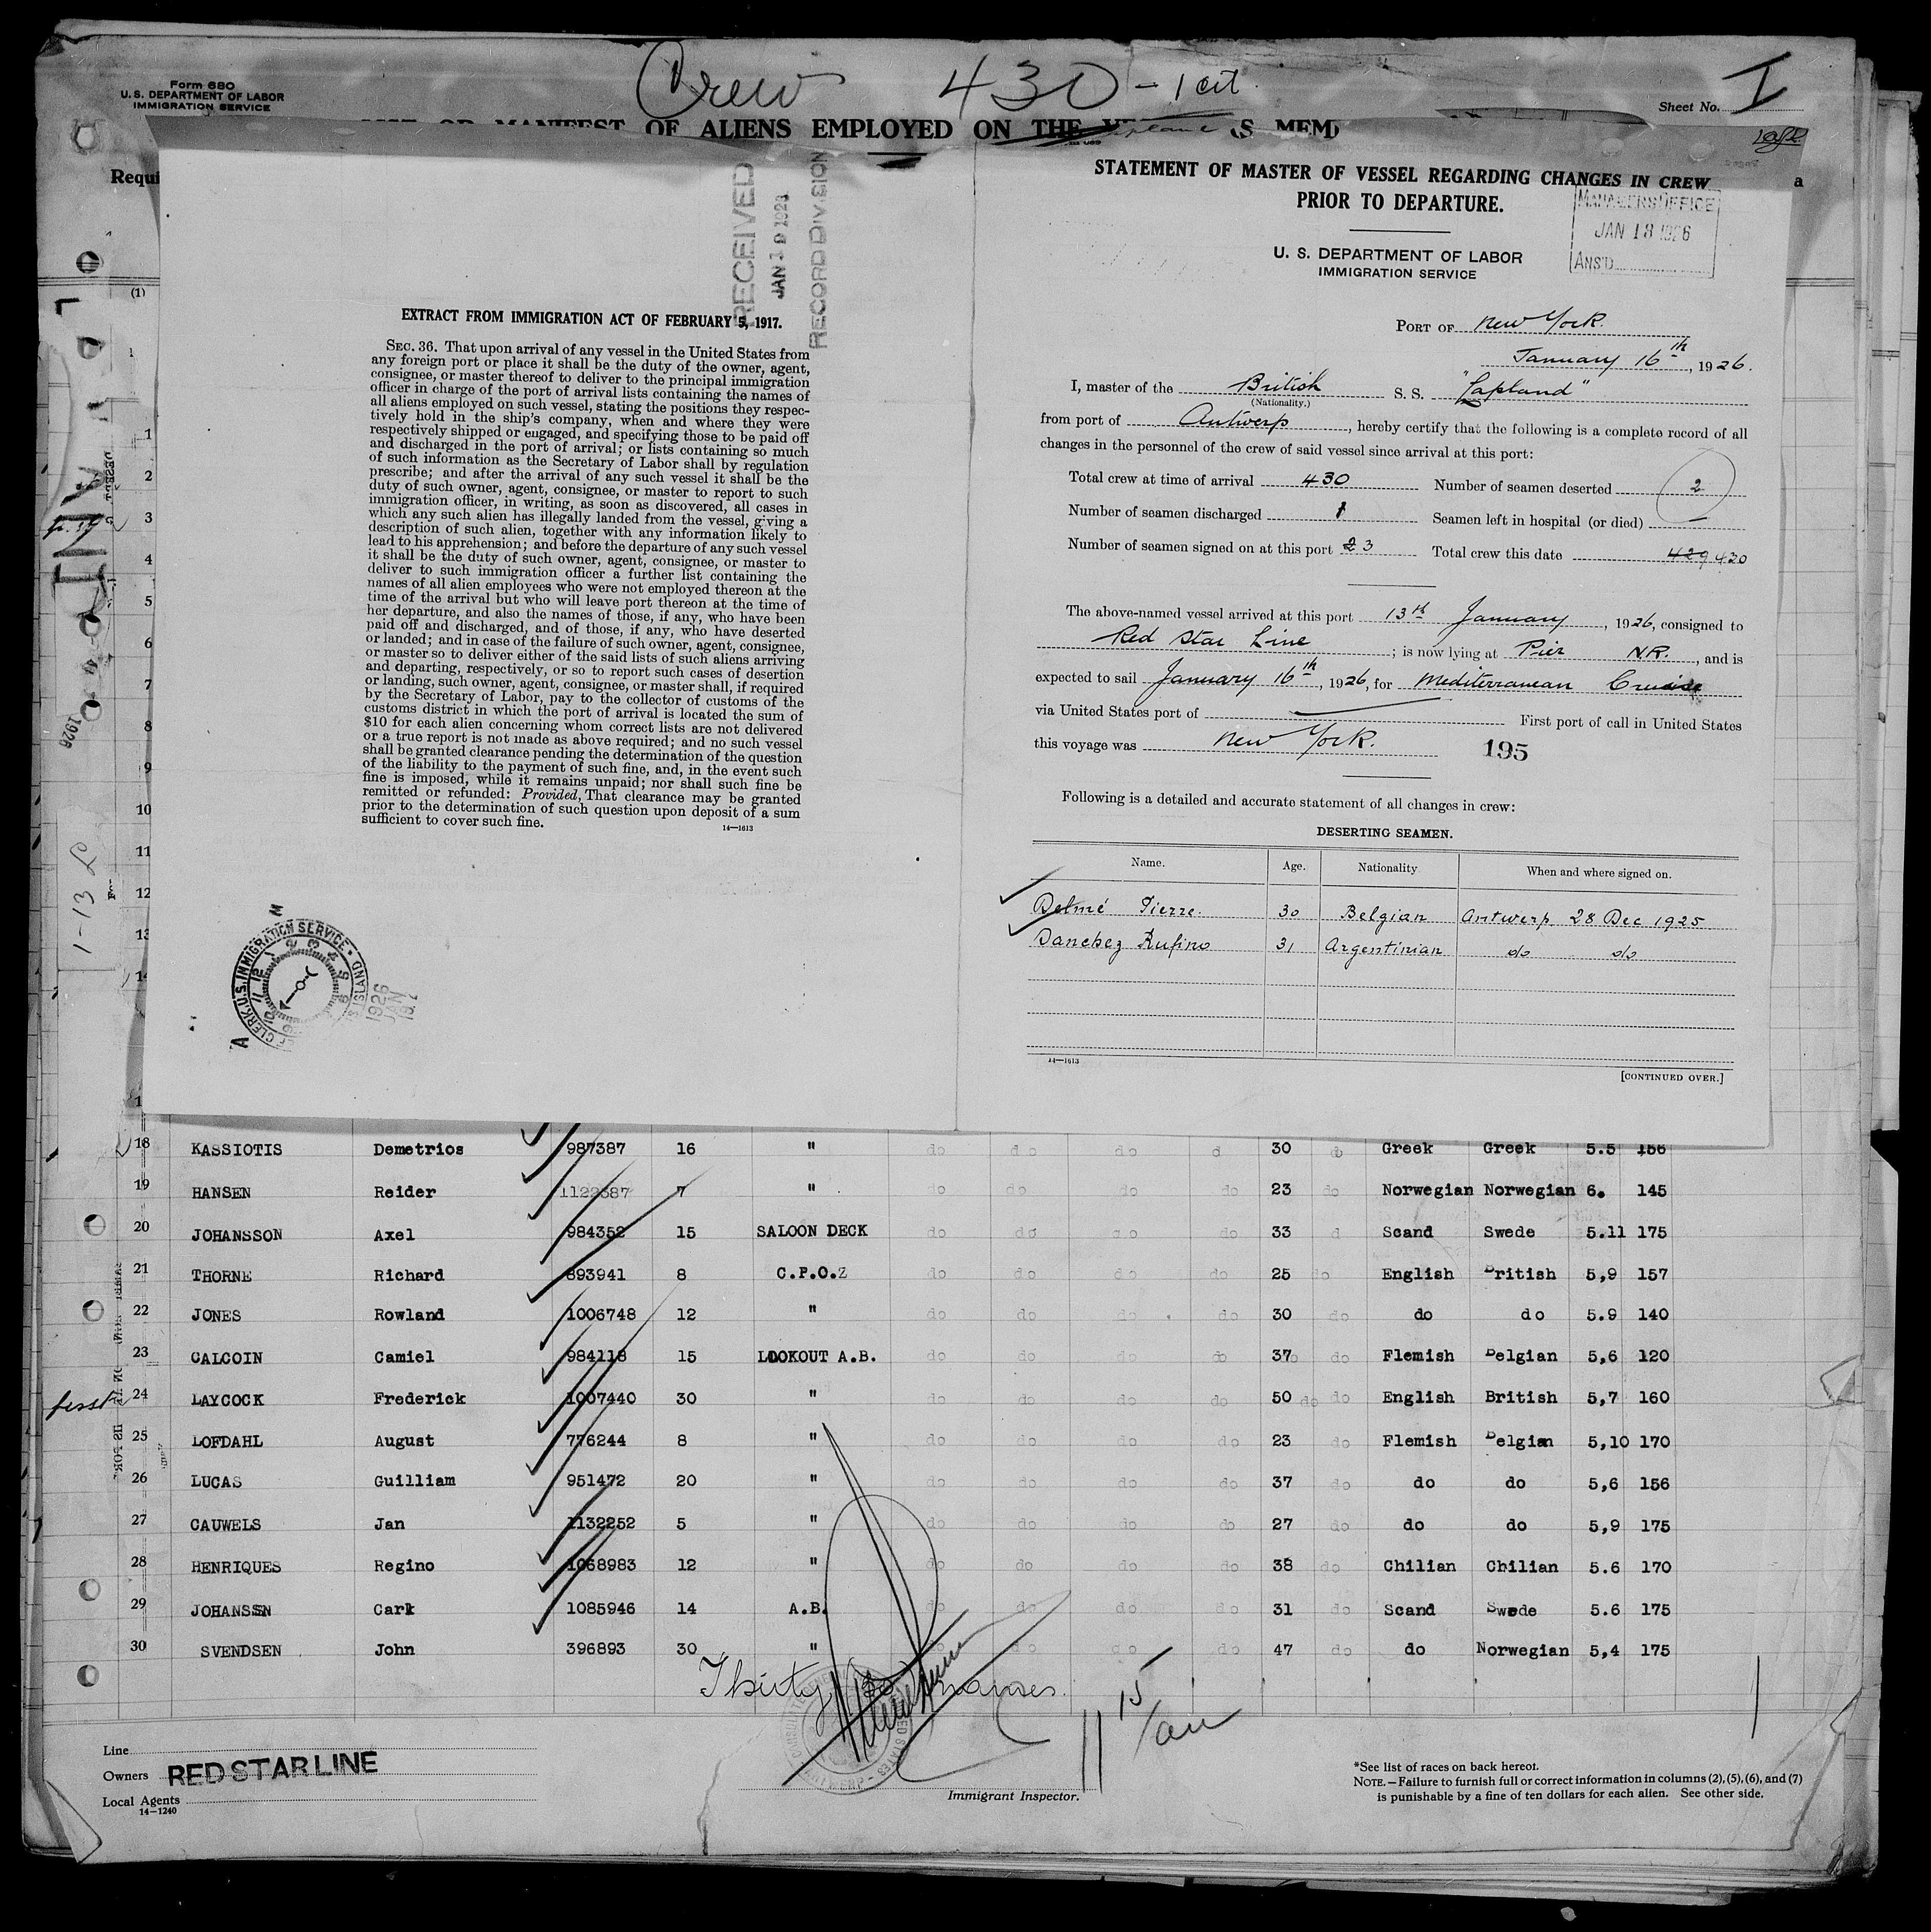 Form 680
U. S. DEPARTMENT OF LABOR
IMMIGRATION SERVICE
Crew 430 - 1 cat.
Sheet No. I
OF ALIENS EMPLOYED ON THE
Requi
RECEIVED
JAN 19 1926
RECORD DIVISION
EXTRACT FROM IMMIGRATION ACT OF FEBRUARY 5, 1917.
SEC. 36. That upon arrival of any vessel in the United States from
any foreign port or place it shall be the duty of the owner, agent,
consignee, or master thereof to deliver to the principal immigration
officer in charge of the port of arrival lists containing the names of
all aliens employed on such vessel, stating the positions they respec-
tively hold in the ship's company, when and where they were
respectively shipped or engaged, and specifying those to be paid off
and discharged in the port of arrival; or lists containing so much
of such information as the Secretary of Labor shall by regulation
prescribe; and after the arrival of any such vessel it shall be the
duty of such owner, agent, consignee, or master to report to such
immigration officer, in writing, as soon as discovered, all cases in
which any such alien has illegally landed from the vessel, giving a
description of such alien, together with any information likely to
lead to his apprehension; and before the departure of any such vessel
it shall be the duty of such owner, agent, consignee, or master to
deliver to such immigration officer a further list containing the
names of all alien employees who were not employed thereon at the
time of the arrival but who will leave port thereon at the time of
her departure, and also the names of those, if any, who have been
paid off and discharged, and of those, if any, who have deserted
or landed; and in case of the failure of such owner, agent, consignee,
or master so to deliver either of the said lists of such aliens arriving
and departing, respectively, or so to report such cases of desertion
or landing, such owner, agent, consignee, or master shall, if required
by the Secretary of Labor, pay to the collector of customs of the
customs district in which the port of arrival is located the sum of
$10 for each alien concerning whom correct lists are not delivered
or a true report is not made as above required; and no such vessel
shall be granted clearance pending the determination of the question
of the liability to the payment of such fine, and, in the event such
fine is imposed, while it remains unpaid; nor shall such fine be
remitted or refunded: Provided, That clearance may be granted
prior to the determination of such question upon deposit of a sum
sufficient to cover such fine.
14—1613
STATEMENT OF MASTER OF VESSEL REGARDING CHANGES IN CREW
PRIOR TO DEPARTURE.
MANAGERS OFFICE
JAN 18 1926
ANS'D
U. S. DEPARTMENT OF LABOR
IMMIGRATION SERVICE
PORT OF New York.
January 16th, 1926.
I, master of the British S. S. "Lapland"
(Nationality.)
from port of Antwerp, hereby certify that the following is a complete record of all
changes in the personnel of the crew of said vessel since arrival at this port:
Total crew at time of arrival 430 Number of seamen deserted 2
Number of seamen discharged 1 Seamen left in hospital (or died) —
Number of seamen signed on at this port 2 3 Total crew this date 429 430
The above-named vessel arrived at this port 13th January, 1926, consigned to
Red Star Line; is now lying at Pier N.R., and is
expected to sail January 16th, 1926, for Mediterranean Cruise
via United States port of First port of call in United States
this voyage was New York.
195
Following is a detailed and accurate statement of all changes in crew:
DESERTING SEAMEN.
Name. Age. Nationality When and where signed on.
Delmé Pierre. 30 Belgian Antwerp 28 Dec 1925
Sanchez Rufino 31 Argentinian do do
14—1613
[CONTINUED OVER.]
(1)
1
1
2
3
4
5
6
7
8
9
10
11
12
13
1926
1-13
18 KASSIOTIS Demetrios 987387 16 " do do do d 30 do Greek Greek 5.5 156
19 HANSEN Reider 7 " do do do do 23 do Norwegian Norwegian 6. 145
20 JOHANSSON Axel 984352 15 SALOON DECK do do do do 33 d Scand Swede 5.11 175
21 THORNE Richard 893941 8 C.P.O.Z do do do do 25 do English British 5,9 157
22 JONES Rowland 1006748 12 " do do do do 30 do do do 5.9 140
23 CALCOIN Camiel 984118 15 LOOKOUT A.B. do do do do 37 do Flemish Belgian 5,6 120
24 LAYCOCK Frederick 1007440 30 " do do do do 50 do do English British 5,7 160
25 LOFDAHL August 776244 8 " do do do do 23 do Flemish Belgian 5,10 170
26 LUCAS Guilliam 951472 20 " do do do do 37 do do do 5,6 156
27 CAUWELS Jan 1132252 5 " do do do do 27 do do do 5,9 175
28 HENRIQUES Regino 1068983 12 " do do do do 38 do Chilian Chilian 5.6 170
29 JOHANSSN Cark 1085946 14 A.B. do do do do 31 do Scand Swede 5.6 175
30 SVENDSEN John 396893 30 " do do do 47 do do Norwegian 5,4 175
Thirty names.
11 15/
Line
Owners RED STAR LINE
Local Agents
14—1240
Immigrant Inspector.
*See list of races on back hereof.
NOTE.—Failure to furnish full or correct information in columns (2), (5), (6), and (7)
is punishable by a fine of ten dollars for each alien. See other side.